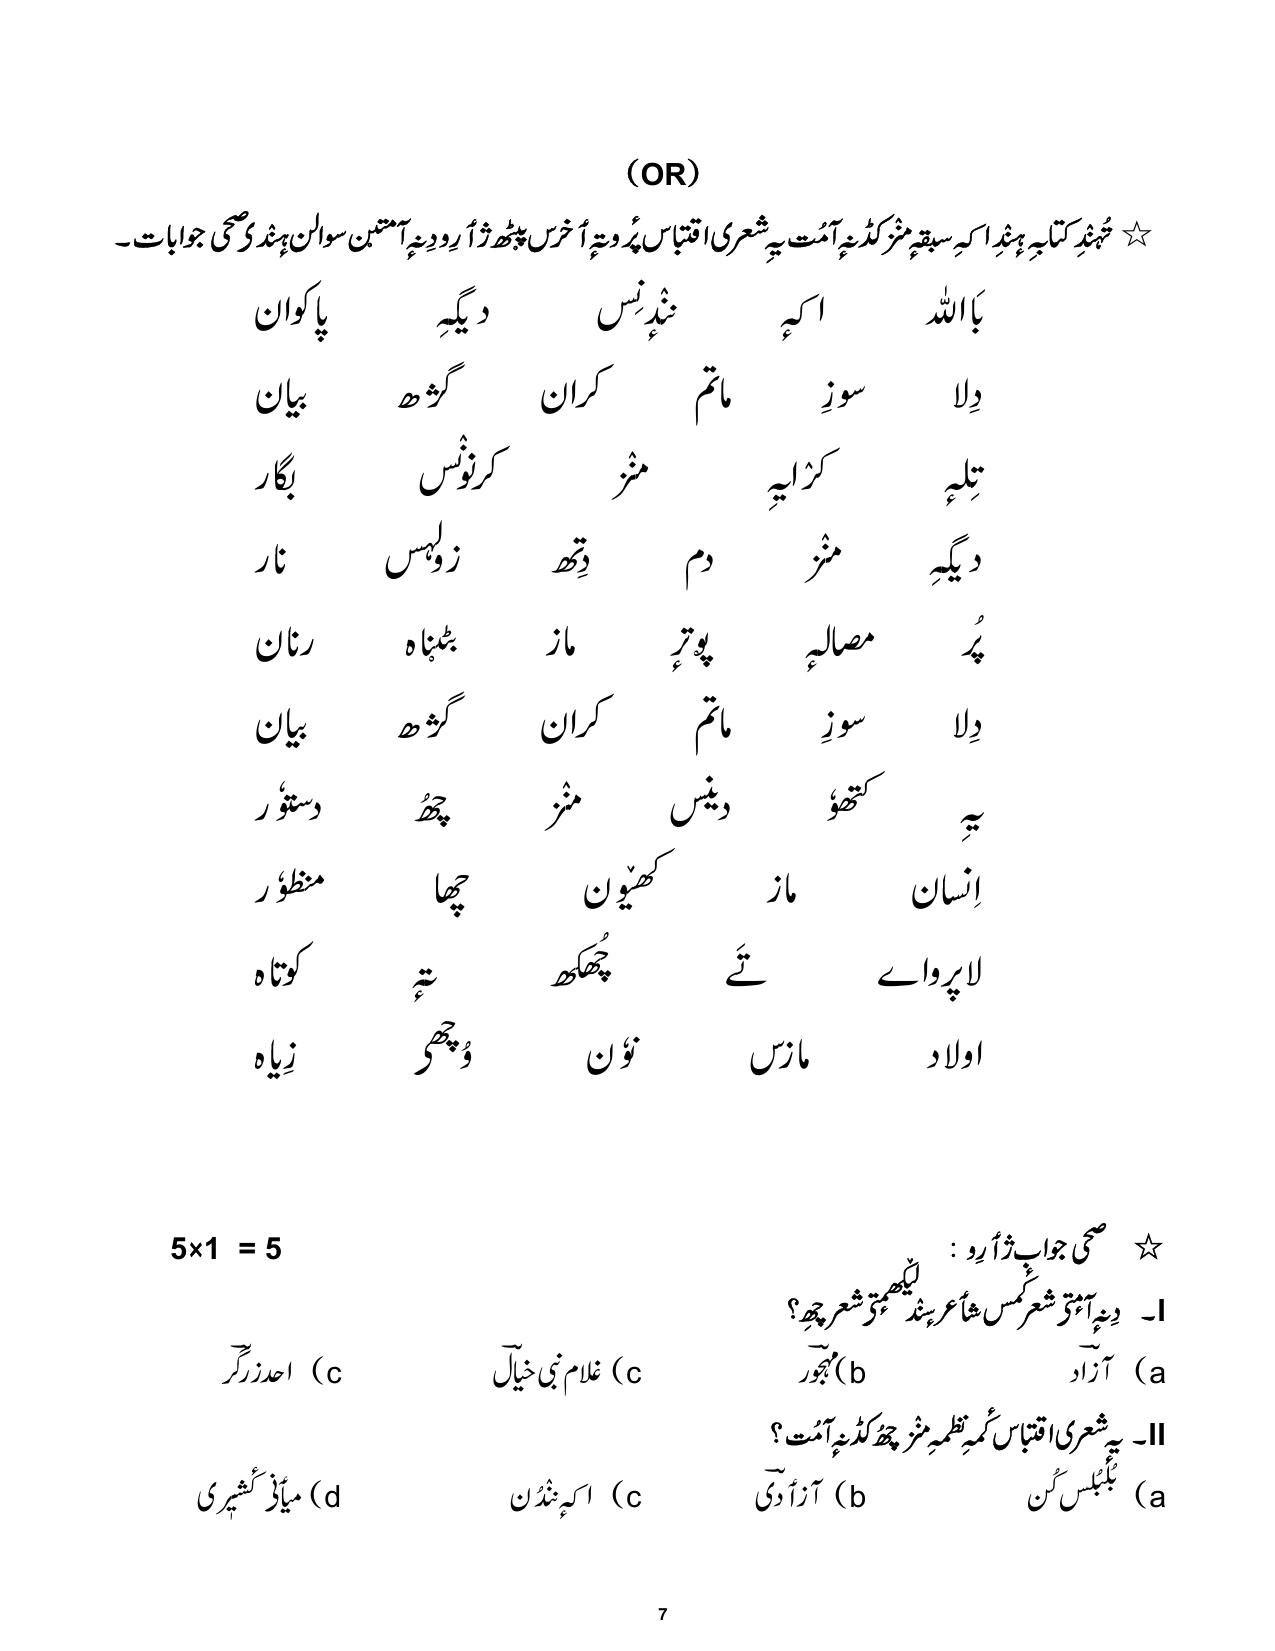 (OR)
☆ تُہنٛدِ کتابہِ ہِنٛدِ اکہِ سبقہٕ منٛز کڈنہٕ آمُت یہِ شعری اقتباس پٔروتہٕ ٲخرس پیٹھ ژٲرِو دِنہٕ آمتین سوالن ہٕنٛدۍ صحی جوابات۔
بَااللہ اکہٕ ننٛدٕنِس دیگہِ پاکوان
دِلا سوزِ ماتم کران گژھ بیان
تِلہٕ کرٛایہِ منٛز کرنوٚنٛس بگار
دیگہِ منٛز دم دِتھ زولہس نار
پُر مصالہٕ پوٚترٕ ماز بٹنہٕاہ رنان
دِلا سوزِ ماتم کران گژھ بیان
یہِ کتھوٗ دینس منٛز چھُ دستوٗر
اِنسان ماز کھیوٚن چھا منظوٗر
لاپرواے تَے چُھکھ تہٕ کوتاہ
اولاد مازس نوٗن وُچھی زِیاہ
☆ صحی جواب ژٲرِو : 5×1 = 5
I۔ دِنہٕ آمٕتۍ شعر کٔمس شٲعر سٕنٛدۍ لیٚکھمٕتۍ شعر چھِ؟
a) آزاد b) مہجور c) غلام نبی خیال c) احد زرگر
II۔ یہِ شعری اقتباس کٔمہِ نظمہِ منٛز چھُ کڈنہٕ آمُت؟
a) بُلبُلس کُن b) آزٲدی c) اکہٕ ننٛدُن d) میٲنۍ کٔشیٖری
7